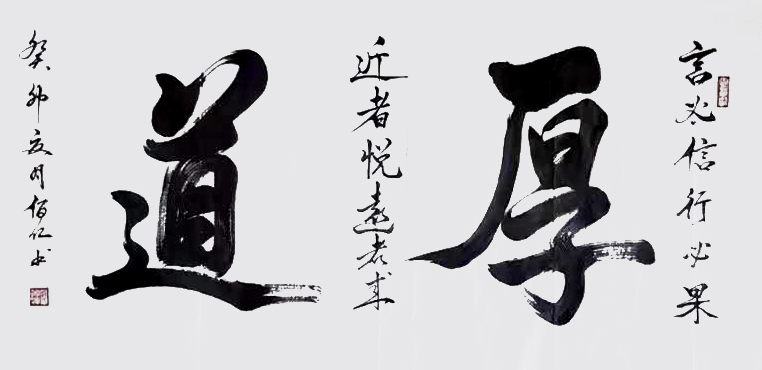 言必信行必果
厚
近者悦远者来
道
癸卯夏月佰仁书